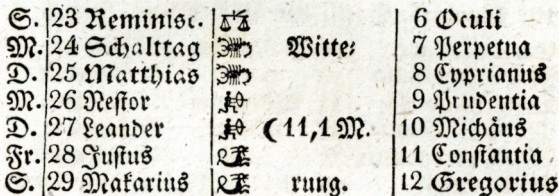 S. 23 Reminisc. ♎ 6 Oculi
M. 24 Schalttag ♏ Witte⸗ 7 Perpetua
D. 25 Matthias ♏ 8 Cyprianus
M. 26 Nestor ♐ 9 Prudentia
D. 27 Leander ♐ ☾ 11,1 M. 10 Michäus
Fr. 28 Justus ♑ 11 Constantia
S. 29 Makarius ♑ rung. 12 Gregorius